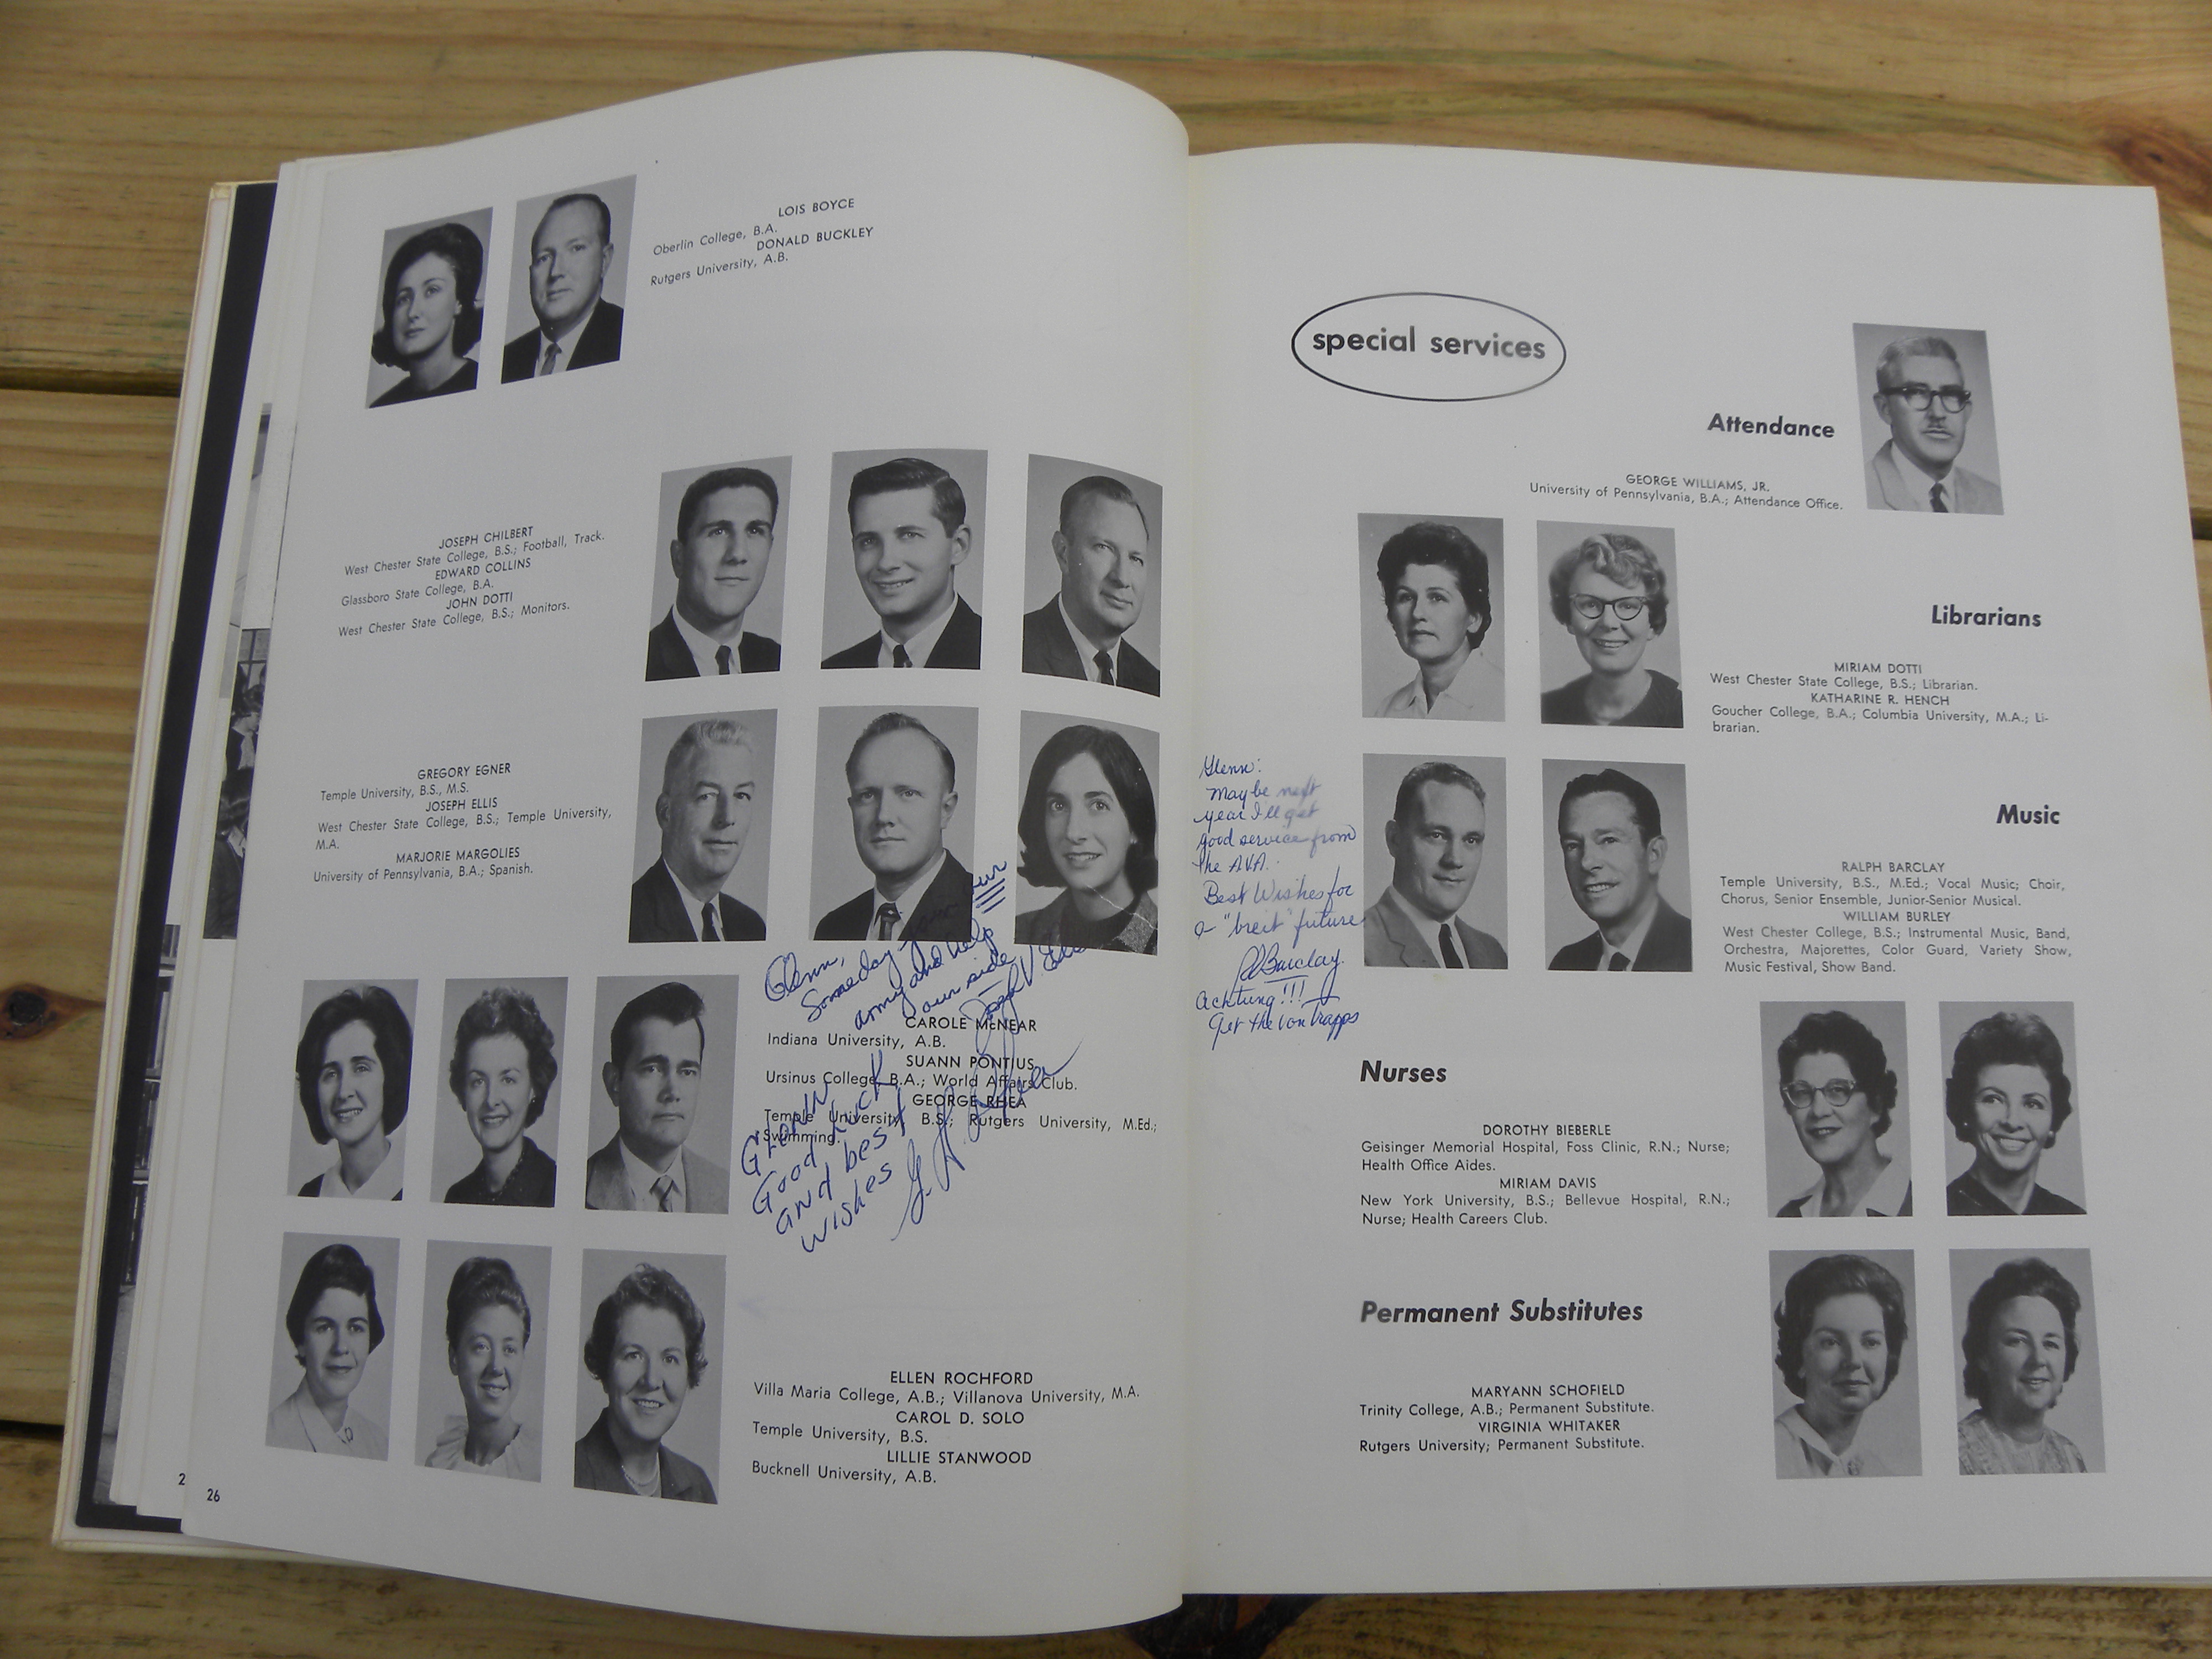 LOIS BOYCE
Oberlin College, B.A.
DONALD BUCKLEY
Rutgers University, A.B.
JOSEPH CHILBERT
West Chester State College, B.S.; Football, Track.
EDWARD COLLINS
Glassboro State College, B.A.
JOHN DOTTI
West Chester State College, B.S.; Monitors.
GREGORY EGNER
Temple University, B.S., M.S.
JOSEPH ELLIS
West Chester State College, B.S.; Temple University,
M.A.
MARJORIE MARGOLIES
University of Pennsylvania, B.A.; Spanish.
Glenn,
Someday join our
army and help
our side
CAROLE McNEAR
Indiana University, A.B.
SUANN PONTIUS
Ursinus College, B.A.; World Affairs Club.
GEORGE RHEA
Temple University, B.S.; Rutgers University, M.Ed.;
Swimming.
Glenn
Good Luck
and best
wishes
ELLEN ROCHFORD
Villa Maria College, A.B.; Villanova University, M.A.
CAROL D. SOLO
Temple University, B.S.
LILLIE STANWOOD
Bucknell University, A.B.
2
26
special services
Attendance
GEORGE WILLIAMS, JR.
University of Pennsylvania, B.A.; Attendance Office.
Librarians
MIRIAM DOTTI
West Chester State College, B.S.; Librarian.
KATHARINE R. HENCH
Goucher College, B.A.; Columbia University, M.A.; Li-
brarian.
Glenn:
Maybe next
year I'll get
good service from
the AVA.
Best Wishes for
a "breit" future
R Barclay
Achtung!!!
Get the von Trapps
Music
RALPH BARCLAY
Temple University, B.S., M.Ed.; Vocal Music; Choir,
Chorus, Senior Ensemble, Junior-Senior Musical.
WILLIAM BURLEY
West Chester College, B.S.; Instrumental Music, Band,
Orchestra, Majorettes, Color Guard, Variety Show,
Music Festival, Show Band.
Nurses
DOROTHY BIEBERLE
Geisinger Memorial Hospital, Foss Clinic, R.N.; Nurse;
Health Office Aides.
MIRIAM DAVIS
New York University, B.S.; Bellevue Hospital, R.N.;
Nurse; Health Careers Club.
Permanent Substitutes
MARYANN SCHOFIELD
Trinity College, A.B.; Permanent Substitute.
VIRGINIA WHITAKER
Rutgers University; Permanent Substitute.